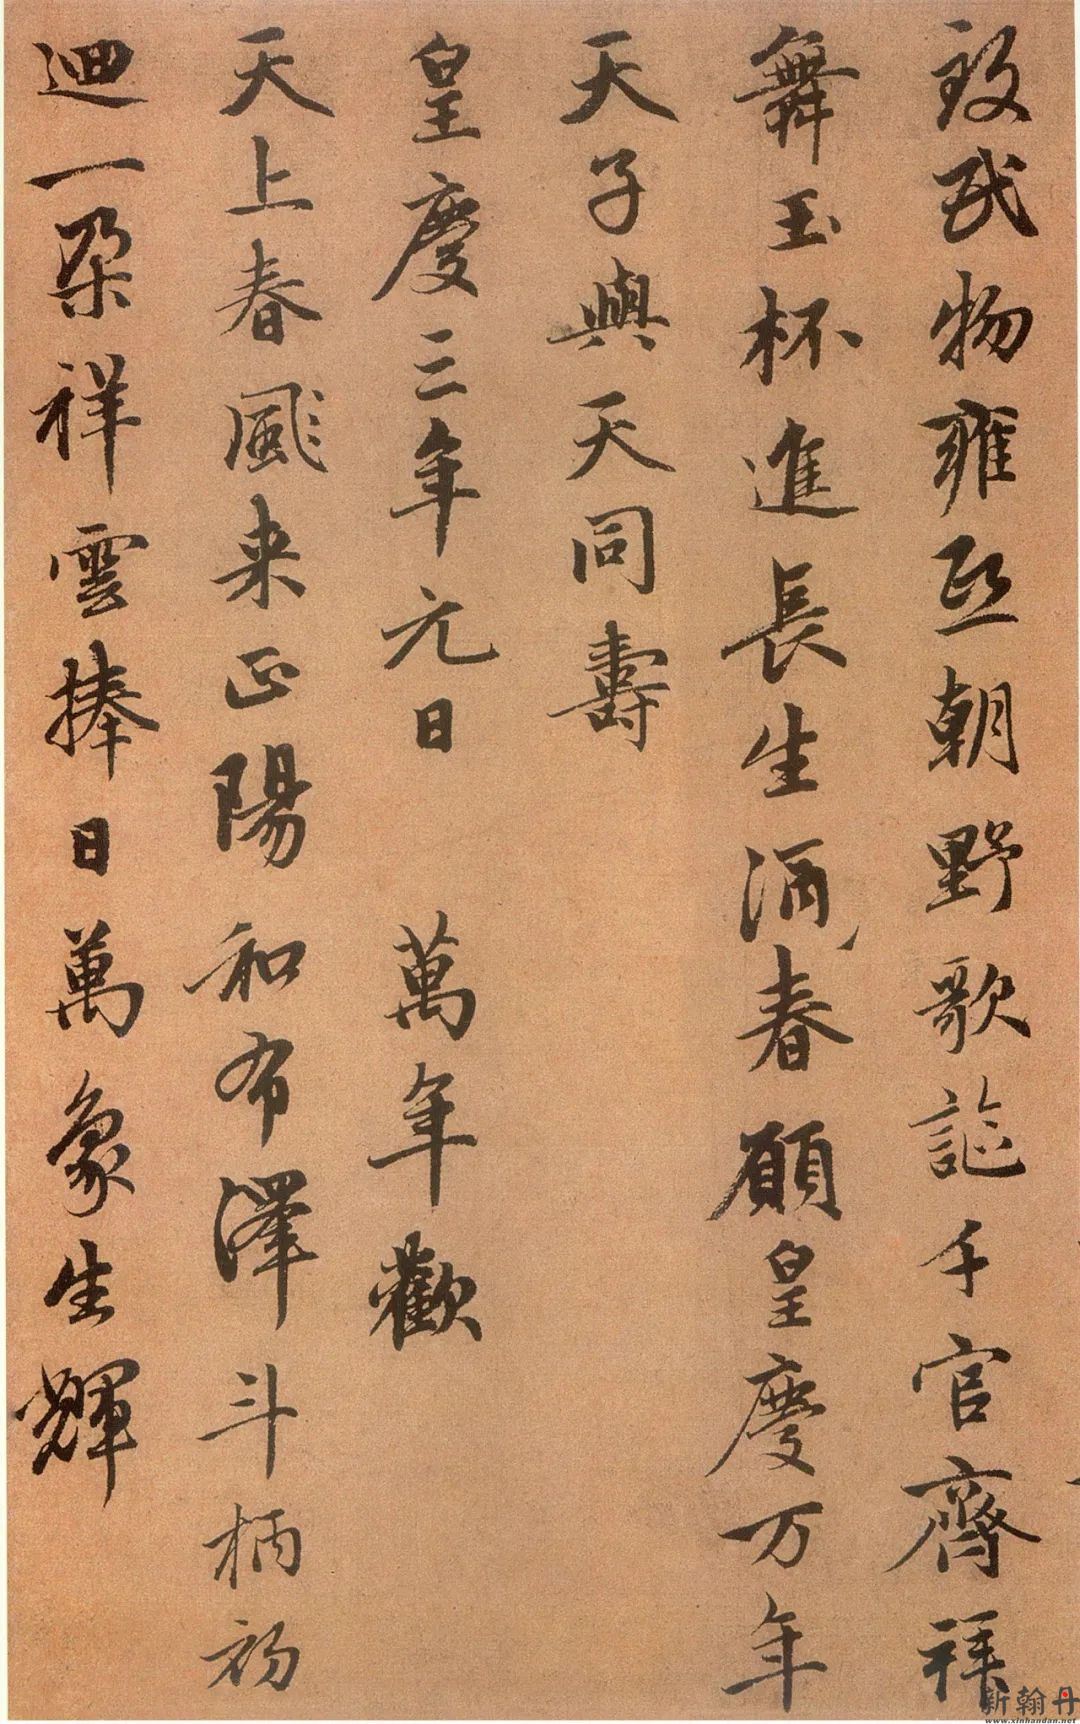 致民物雍熙朝野歌謳千官齊拜
舞玉杯進長生酒春願皇慶万年
天子與天同壽
皇慶三年元日 萬年歡
天上春風来正陽和布澤斗柄初
迴一朶祥雲捧日萬象生輝
新翰丹
www.xinhandan.net